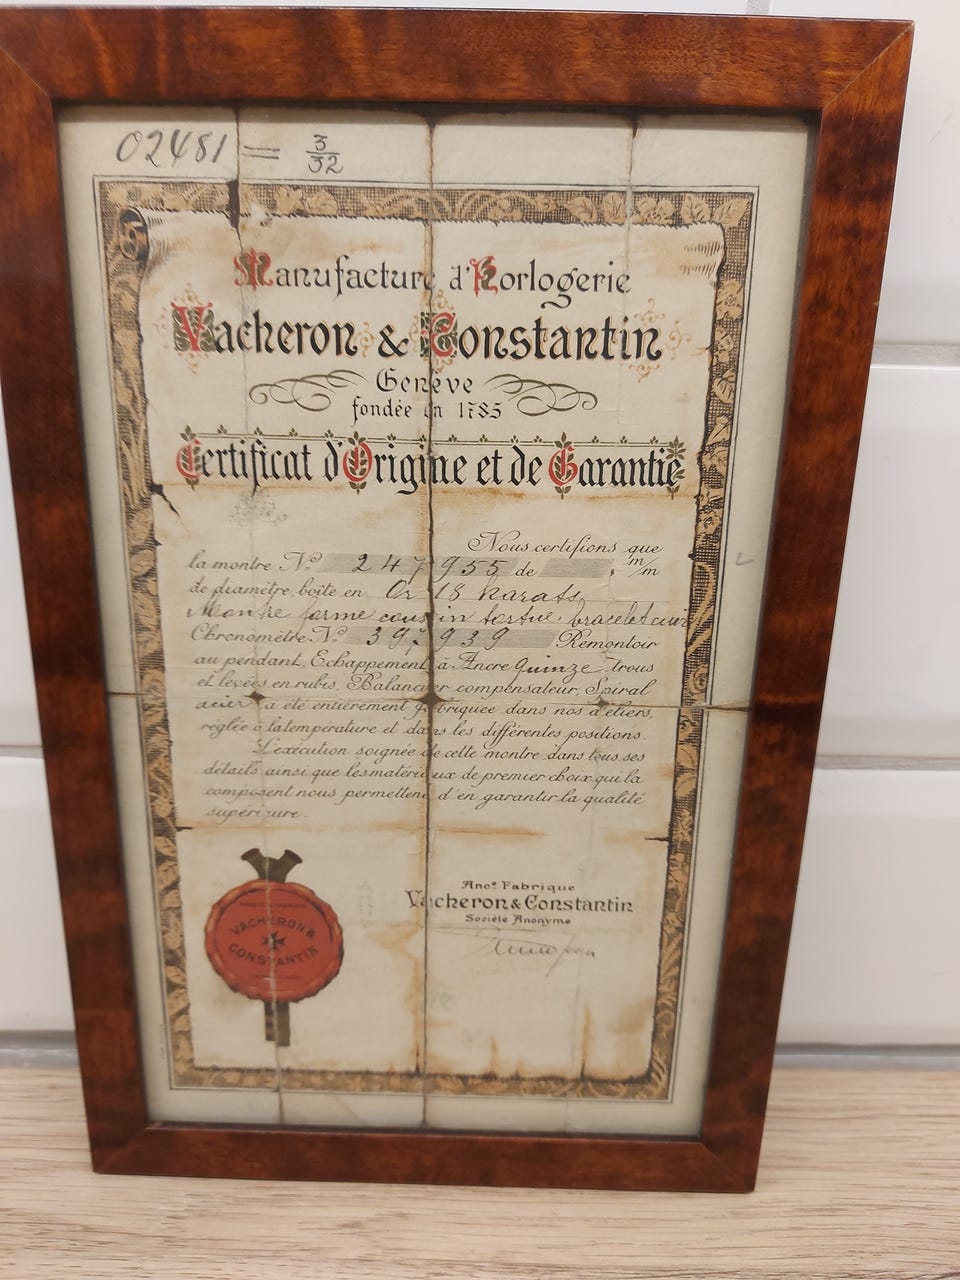 02481 = 3/32
Manufacture d'Horlogerie
Vacheron & Constantin
Genève
fondée en 1785
Certificat d'Origine et de Garantie
Nous certifions que
la montre Nº 247955 de m/m
de diamètre, boîte en Or 18 karats
Montre forme coussin tortue bracelet cuir
Chronomètre Nº 397939 Remontoir
au pendant, Echappement à Ancre quinze trous
et levées en rubis, Balancier compensateur, Spiral
acier a été entièrement fabriquée dans nos ateliers,
réglée à la température et dans les différentes positions.
L'exécution soignée de cette montre dans tous ses
détails ainsi que les matériaux de premier choix qui la
composent nous permettent d'en garantir la qualité
supérieure.
Ancne Fabrique
Vacheron & Constantin
Société Anonyme
VACHERON &
CONSTANTIN